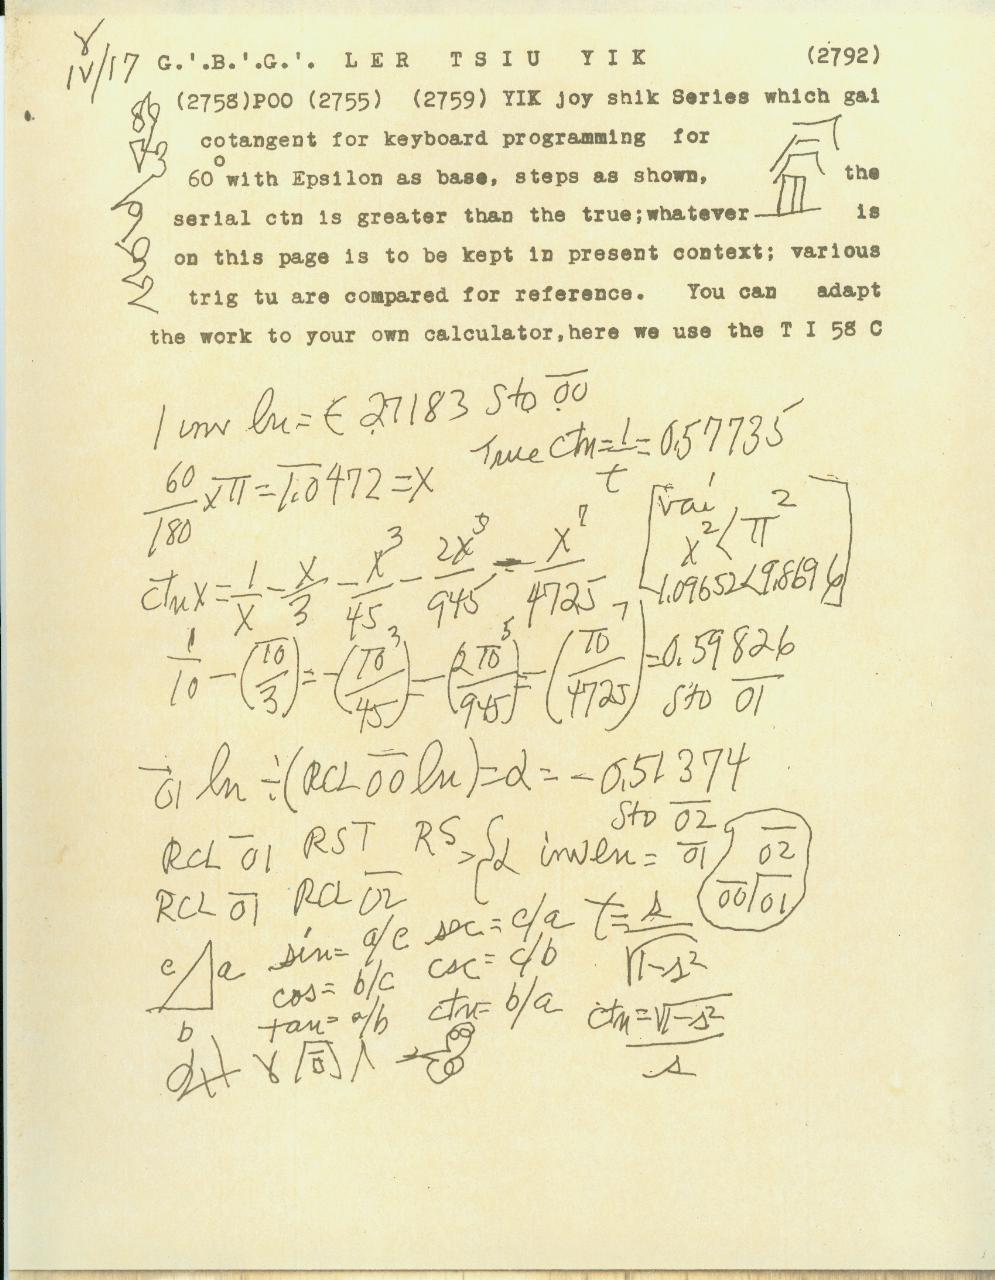 IV/17 G.'.B.'.G.'. LER TSIU YIK (2792)
(2758)POO (2755) (2759) YIK joy shik Series which gai
cotangent for keyboard programming for
60° with Epsilon as base, steps as shown, the
serial ctn is greater than the true;whatever is
on this page is to be kept in present context; various
trig tu are compared for reference. You can adapt
the work to your own calculator,here we use the T I 58 C
1 inv ln = € 2.7183 Sto 00
True Ctn = 1/t = 0.57735
60/180 x π = 1.0472 = x
vai x² < π²
1.09652 < 9.8696
ctn x = 1/x - x/3 - x³/45 - 2x⁵/945 - x⁷/4725
1/10 - (10/3) = - (10³/45) = - (2 10⁵/945) = - (10/4725)⁷ = 0.59826
Sto 01
01 ln ÷ (RCL 00 ln) = α = -0.51374
Sto 02
RCL 01 RST RS > { α inv ln = 01
02
00/01
RCL 01 RCL 02
c a b
sin = a/c sec = c/a t = s/√1-s²
cos = b/c csc = c/b
tan = a/b ctn = b/a ctn = √1-s²/s